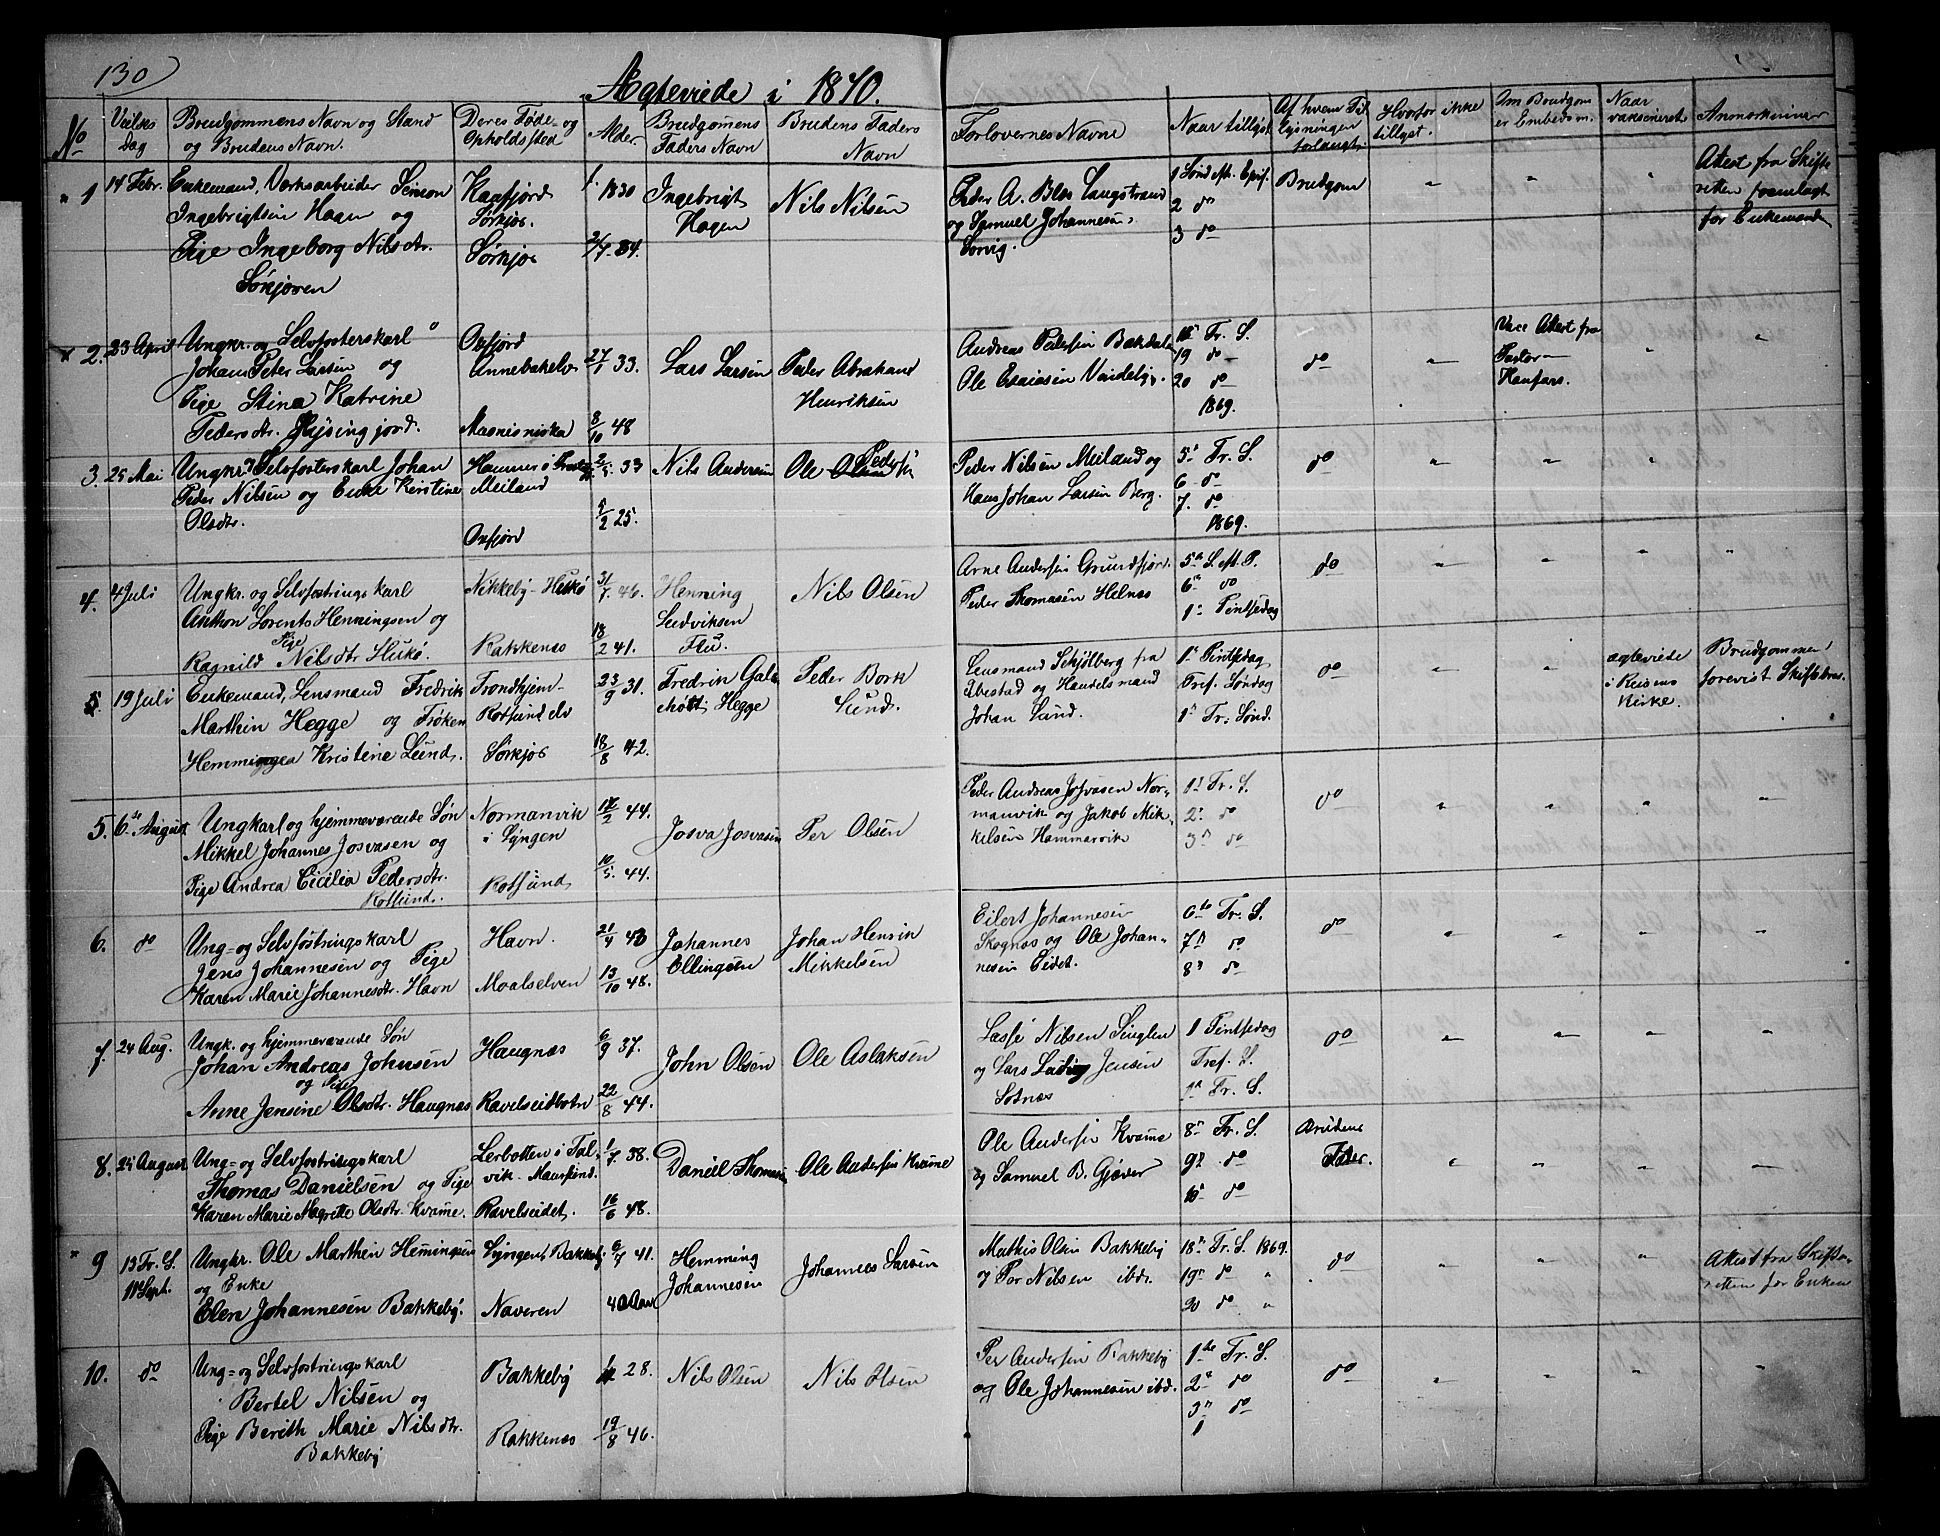 130
Ægteviede i 1870.
No
Vielses Dag
Brudgommens Navn og Stand og Brudens Navn.
Deres Føde- og Opholdssted
Alder.
Brudgomens Faders Navn
Brudens Faders Navn
Forlovernes Navne
Naar tillyst
Af hvem Tillysningen forlangt.
Hvorfor ikke tillyst.
Om Brudgom er Embedsm.
Naar vaksineret
Anmærkninger
1
14 Febr.
Enkemand, Værksarbeider Simon
Ingebrigtsen Hagen og
Pige Ingeborg Nilsdtr.
Sørkjoren
Kaafjord
Sørkjos.
Sørkjos
1830
34.
Ingebrigt
Hagen
Nils Nilsen
Peder A. Blos Langstrand
og Samuel Johannesen
Sorvig.
1 Sønd. eft. Epif.
2 do
3 do
Brudgom
"
"
"
Attest fra Skifteretten fremlagt
for Enkemanden
2.
23 April
Ungkr. og Selvfosterskarl
Johan Peter Larsen og
Pige Stina Katrine
Pedersdtr. Rysingjord.
Oxfjord
Annebakelv
Masnisniska
27/1 33.
8/10 48
Lars Larsen
Peder Abraham
Henriksen
Andreas Pedersen Bakdalen
Ole Esaiasen Vindelbj.
18 Fr. S.
19 do
20 do
1869.
do
"
Vacc Attest fra
Pastor
Kaurars.
"
"
3.
25 Mai
Ungkr. Selvfosterskarl Johan
Peder Nilsen og Enke Kirstine
Olsdtr.
Hammer i
Meiland
Oxfjord
2/5 33
2/2 25.
Nils Andersen
Ole Pedersen
Peder Nilsen Meiland og
Hans Johan Larsen Berg.
5 Fr. S.
6 do
7. do
1869.
do
"
"
"
"
4.
4 Juli
Ungkr. og Selvfostringskarl
Anthon Lorents Henningsen og
Pige
Ragnild Nilsdtr Flukø.
Nikkeby
Rakkenæs
31/7 46.
18/2 41.
Henning
Ludviksen
Flu.
Nils Olsen
Arne Andersen Grundfjor.
Peder Thomasen Helnæs
5te S. eft. P.
6 do
1 Pintsedag
do
"
"
"
"
5.
19 Juli
Enkemand, Lensmand Fredrik
Marthin Hegge og Frøken
Hemmingea Kristine Lund.
Trondhjem
Rotsundelv
Sørkjos
23/9 31.
18/8 42.
Fredrik
Hegge
Peder Bork
Lund.
Lensmand Schjølberg fra
Ibestad og Handelsmand
Johan Lund.
1 Pintsedag
Tref. Søndag
1 Fr. Sønd.
do
"
"
ægteviede
i Reisens
Kirke.
Brudgommen
forevist Skiftebrev.
5.
6te August
Ungkarl og hjemmeværende Søn
Mikkel Johannes Josvasen og
Pige Andrea Cicilia Pedersdtr.
Rotsund.
Normanvik
i Lyngen
Rotsund
12/2 44.
10/5. 44.
Josva Josvasen
Per Olsen
Peder Andreas Josvasen Normanvik og Jakob Mikkelsen Hammervik
1 Fr. S.
2 do
3 do
do
"
"
"
"
6.
do
Ung- og Selvfostringskarl
Jens Johannesen og Pige
Karen Marie Johannesdtr. Havn
Havn.
Maalselven
21/4 43
13/10 48.
Johannes
Ellingsen
Johan Henrik
Mikkelsen
Eilert Johannesen
Skognæs og Ole Johannesen Eidet.
6te Fr. S.
7 do
8 do
do
"
"
"
"
7.
24 Aug.
Ungk. og hjemmeværende Søn
Johan Andreas Johnsen
og Pige
Anne Jensine Olsdtr. Haugnæs
Haugnæs
Ravelseidbotn
6/9 37.
22/8 44.
John Olsen
Ole Aslaksen
Lasse Nilsen Singlen
og Lars Ludvig Jensen
Sotnæs
1 Pintsedag
Tref. S.
1 Fr. S.
do
"
"
"
"
8.
25 August
Ung- og Selvfostringskarl
Thomas Danielsen og Pige
Karen Marie Magrette Olsdtr. Kvæne.
Lerbotten i Talvik. Maursund.
Ravelseidet.
1/7. 38.
16/6 48.
Daniel Thomasen
Ole Andersen Kvæne
Ole Andersen Kvæne
og Samuel B. Gjøver
8 Fr. S.
9 do
10 do
Brudens
Fader.
"
"
"
"
9
13 Fr. S.
11 Sept.
Ungkr. Ole Marthin Hemingsen
og Enke
Elen Johannesen Bakkeby.
Lyngen, Bakkeby
Naveren
6/7 41.
40 Aar
Hemming
Johannesen
Johannes Larsen
Mathis Olsen Bakkeby
og Por Nilsen ibdr.
18 Fr. S. 1869.
19 do "
20 do "
do
"
"
"
Attest fra Skifteretten for Enken
10.
do
Ung- og Selvfostringskarl
Bertel Nilsen og
Pige Berith Marie Nilsdtr.
Bakkeby
Bakkeby
Rakkenæs
28.
19/8 46.
Nils Olsen
Nils Olsen
Per Andersen Bakkeby
og Ole Johannesen ibd.
1te Fr. S.
2 do
3 do
do
"
"
"
"